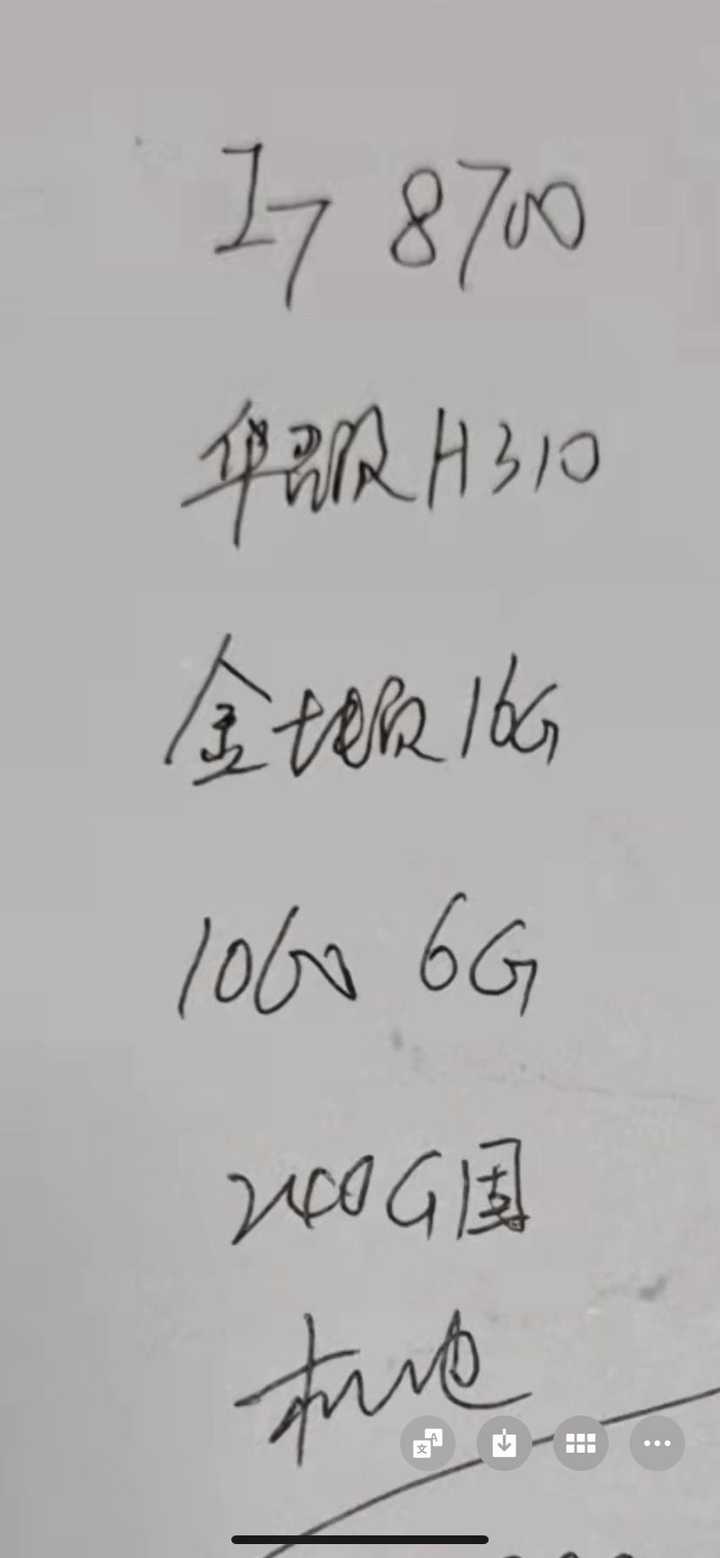 I7 8700
华硕 H310
金士顿 16G
1060 6G
240G固